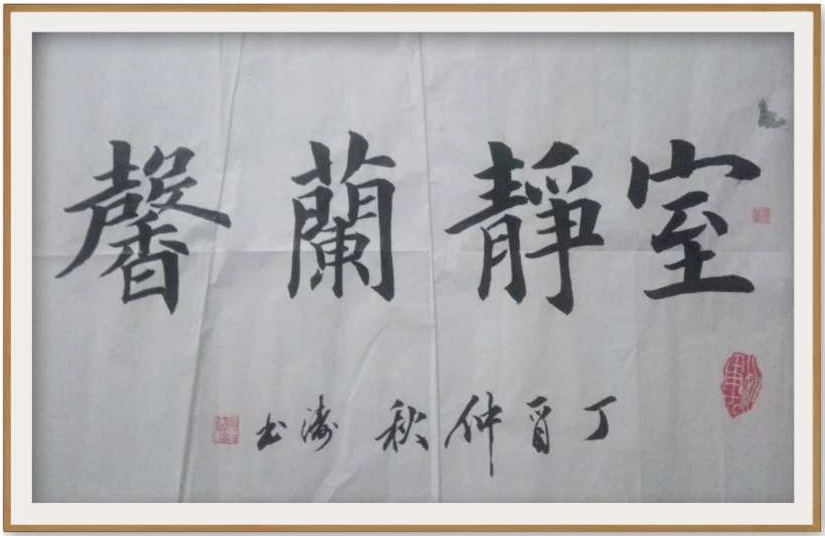 室靜蘭馨
丁酉仲秋 涛书